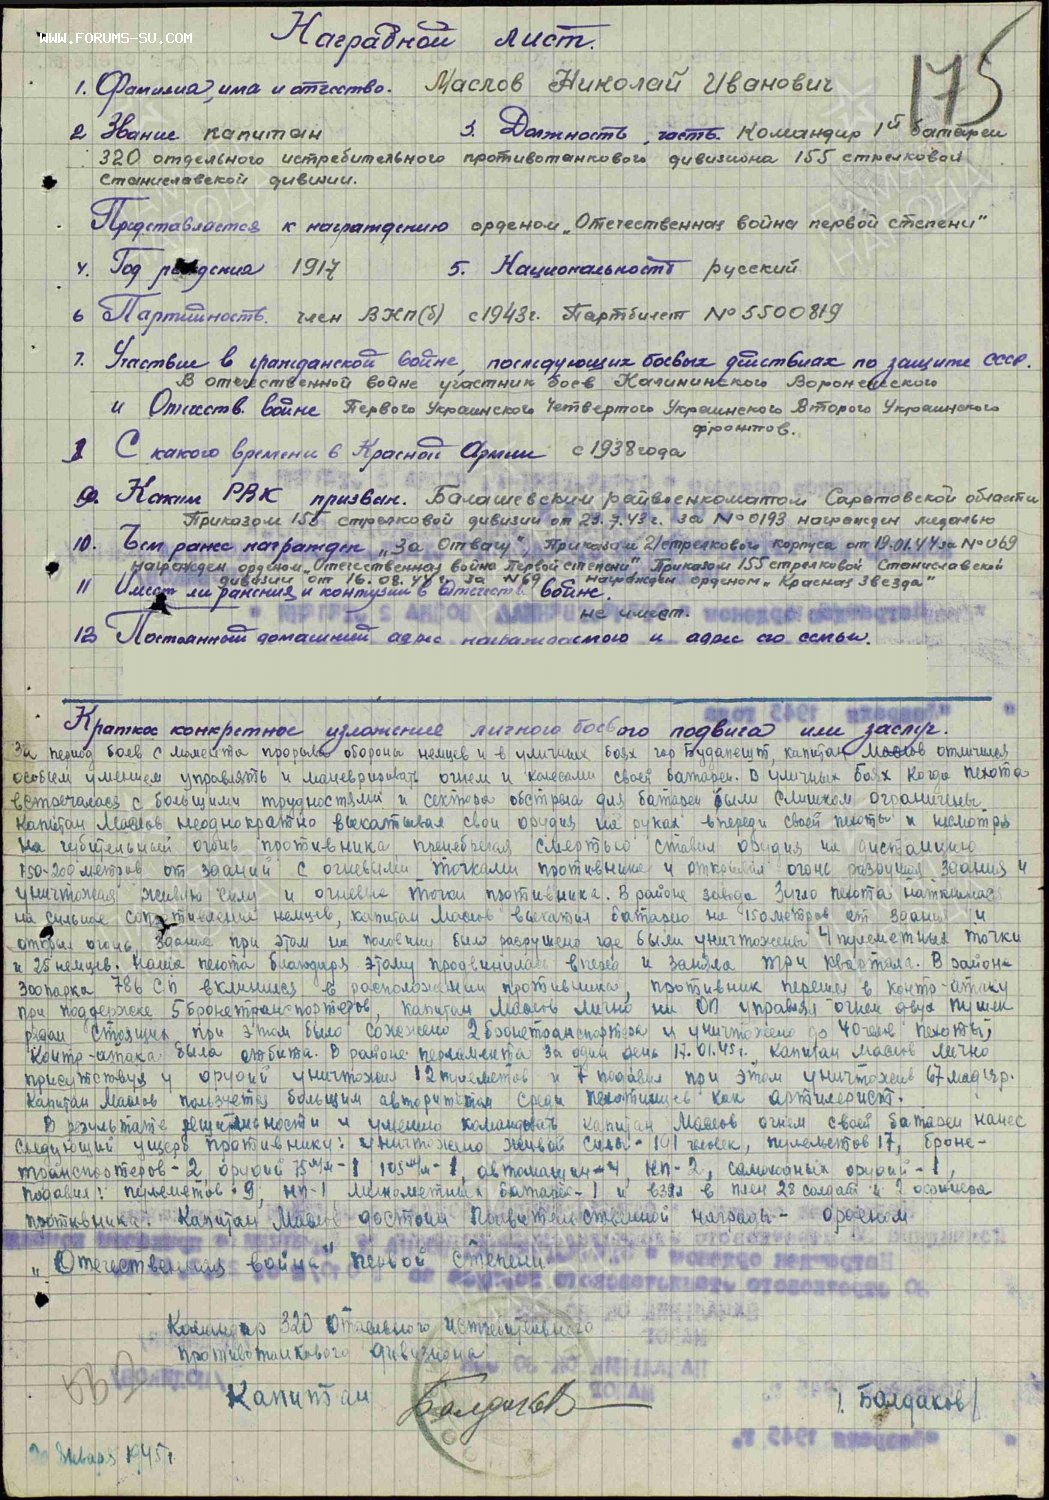 WWW.FORUMS-SU.COM
Наградной лист.
175
1. Фамилия, имя и отчество. Маслов Николай Иванович
2 Звание капитан 3. Должность, часть. Командир 1й батареи
320 отдельного истребительного противотанкового дивизиона 155 стрелковой
Станиславской дивизии.
Представляется к награждению орденом „Отечественная война первой степени"
4. Год рождения 1917 5. Национальность русский
6 Партийность. член ВКП(б) с 1943г. Партбилет № 5500819
7. Участие в гражданской войне, последующих боевых действиях по защите СССР.
В отечественной войне участник боев Калининского Воронежского
и Отечеств. войне Первого Украинского Четвертого Украинского Второго Украинского
фронтов.
8 С какого времени в Красной Армии с 1938 года
9. Каким РВК призван. Балашевским райвоенкоматом Саратовской области
Приказом 155 стрелковой дивизии от 23.9.43г. за № 0193 награжден медалью
10. Чем ранее награжден „За Отвагу", Приказом 21 стрелкового корпуса от 19.01.44 за № 069
награжден орденом „Отечественная война Первой степени" Приказом 155 стрелковой Станиславской
дивизии от 16.08.44г. за №69 награжден орденом „Красная Звезда"
11 Имеет ли ранения и контузии в Отечеств. войне.
не имеет.
12 Постоянный домашний адрес награждаемого и адрес его семьи.
Краткое конкретное изложение личного боевого подвига или заслуг.
За период боев с момента прорыва обороны немцев и в уличных боях гор Будапешт, капитан Маслов отличился
особым умением управлять и маневрировать огнем и колесами своей батареи. В уличных боях когда пехота
встречалась с большими трудностями и сектора обстрела для батареи были слишком ограничены.
Капитан Маслов неоднократно выкатывал свои орудия на руках впереди своей пехоты и несмотря
на губительный огонь противника пренебрегая смертью ставил орудия на дистанцию
150-200 метров от зданий с огневыми точками противника и открывал огонь разрушая здания и
уничтожая живую силу и огневые точки противника. В районе завода пехота наткнулась
на сильное сопротивление немцев, капитан Маслов выкатил батарею на 150 метров от здания и
открыл огонь, здание при этом на половину было разрушено где были уничтожены 4 пулеметных точки
и 25 немцев. Наша пехота благодаря этому продвинулась вперед и заняла три квартала. В районе
зоопарка 786 СП вклинился в расположении противника, противник перешел в контр-атаку
при поддержке 5 бронетранспортеров, капитан Маслов лично на ОП управляя огнем двух пушек
рядом стоящих при этом было сожжено 2 бронетранспортера и уничтожено до 40 чел. пехоты,
контр-атака была отбита. В районе парламента за один день 17.01.45г. капитан Маслов лично
присутствуя у орудий уничтожил 12 пулеметов и 7 подавил при этом уничтожив 67 мадьяр.
Капитан Маслов пользуется большим авторитетом среди пехотинцев как артилерист.
В результате решительности и умению командовать капитан Маслов огнем своей батареи нанес
следующий ущерб противнику: уничтожено живой силы - 191 человек, пулеметов 17, броне-
транспортеров - 2, орудий 75 м/м - 1 105 м/м - 1, автомашин - 4, НП - 2, самоходных орудий - 1,
подавил: пулеметов - 9, НП - 1 минометных батарей - 1 и взял в плен 28 солдат и 2 офицера
противника. Капитан Маслов достоин Правительственной награды - орденом
„Отечественная война" первой степени
Командир 320 Отдельного истребительного
противотанкового дивизиона
Капитан /Болдаков/
20 января 1945г.